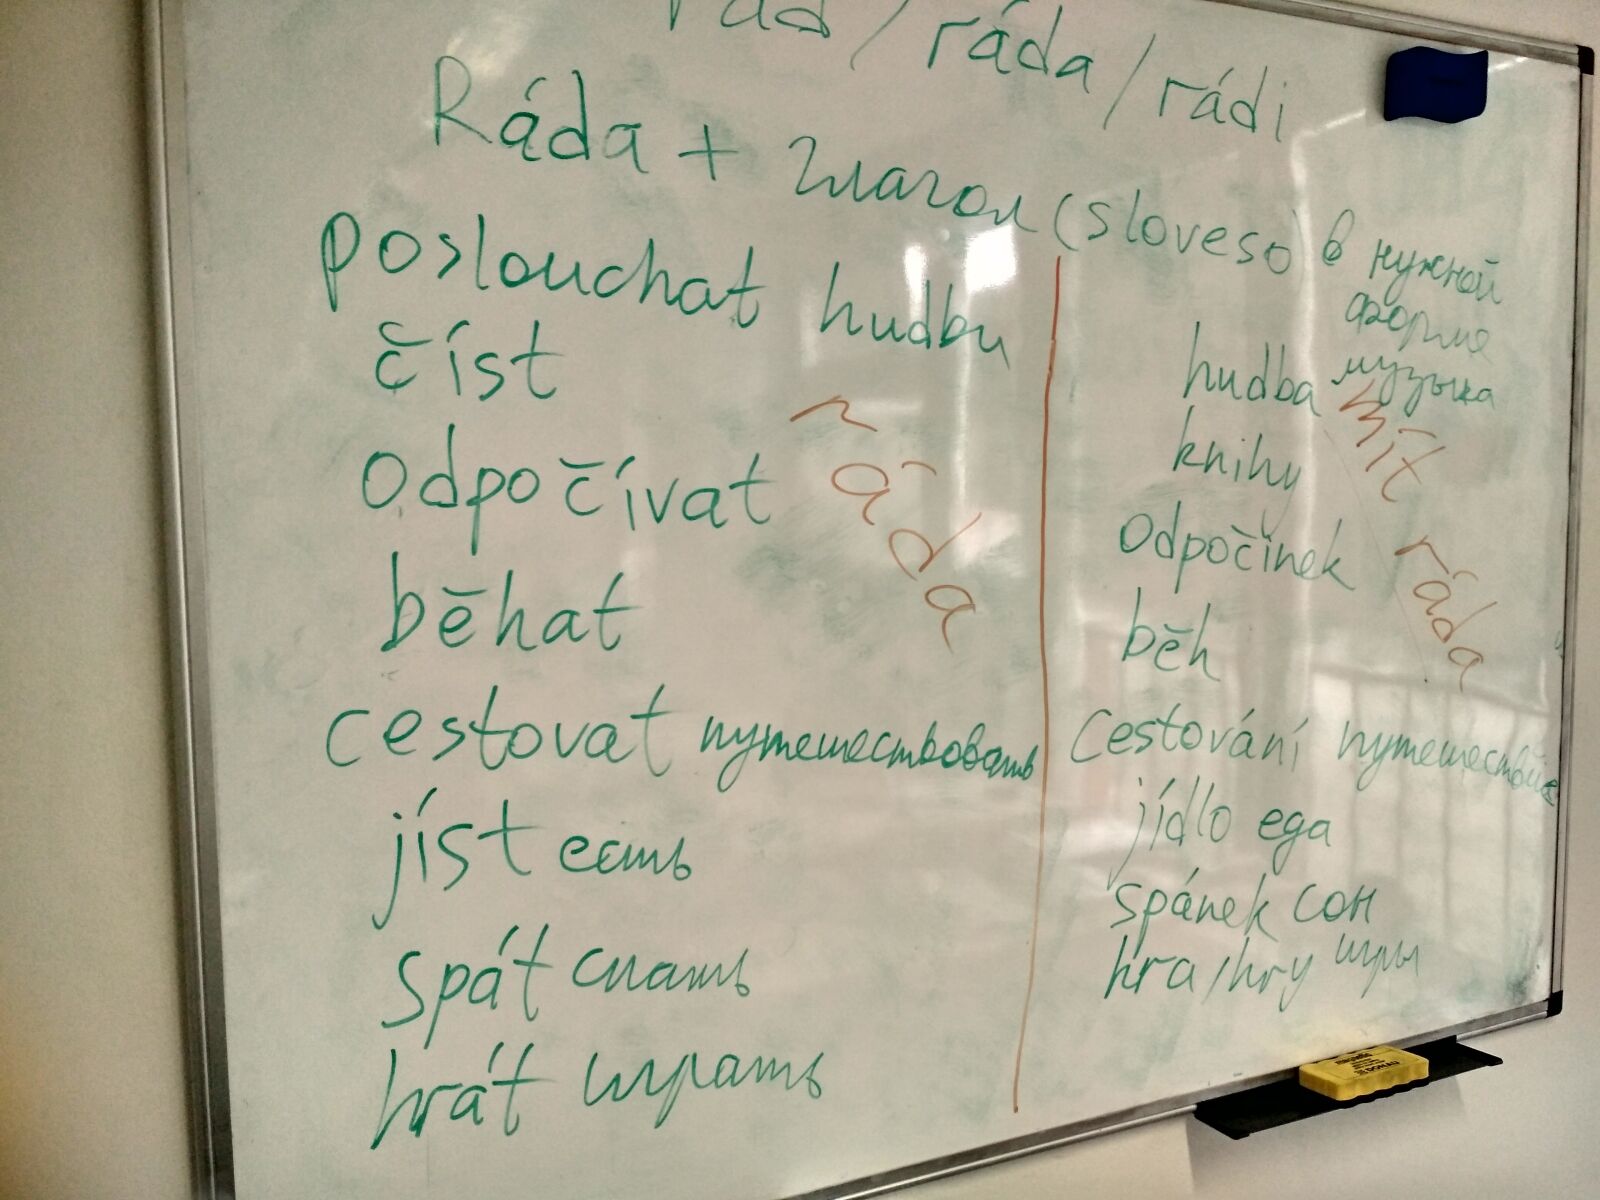 rád / ráda / rádi
Ráda + глагол (sloveso) в нужной
форме
poslouchat hudbu
číst
odpočívat
běhat
cestovat путешествовать
jíst есть
spát спать
hrát играть
ráda
hudba музыка
knihy
odpočinek
běh
cestování путешествие
jídlo еда
spánek сон
hra/hry игры
mít ráda
DONAU